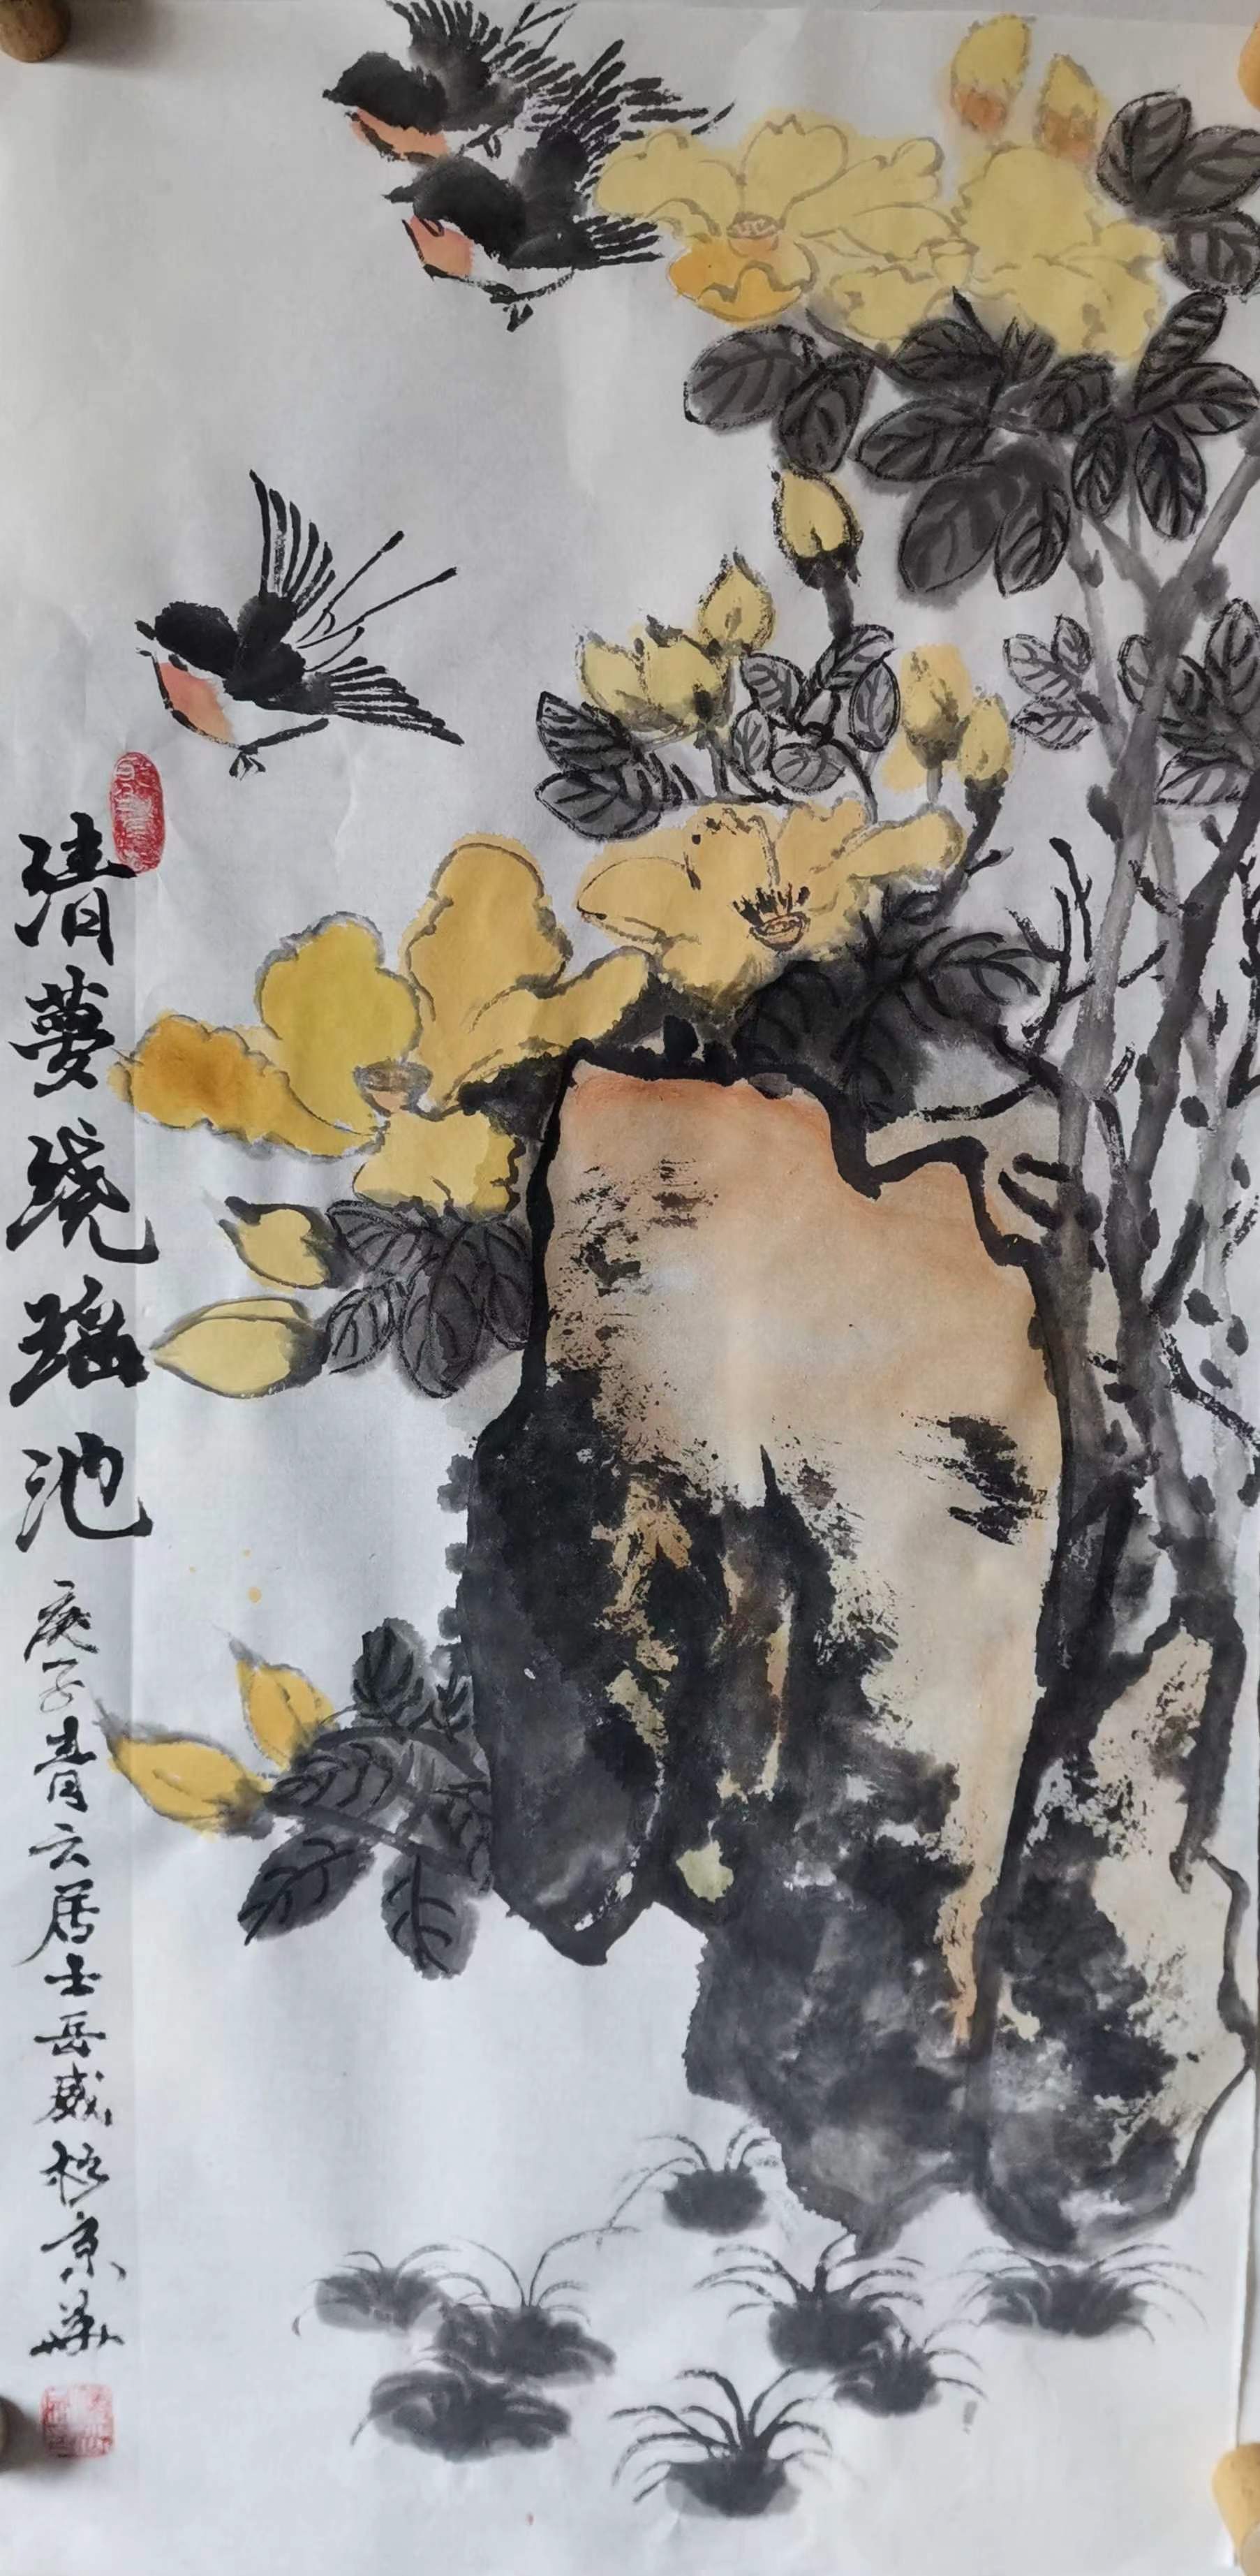 清夢繞瑤池
庚子青云居士岳威於京華